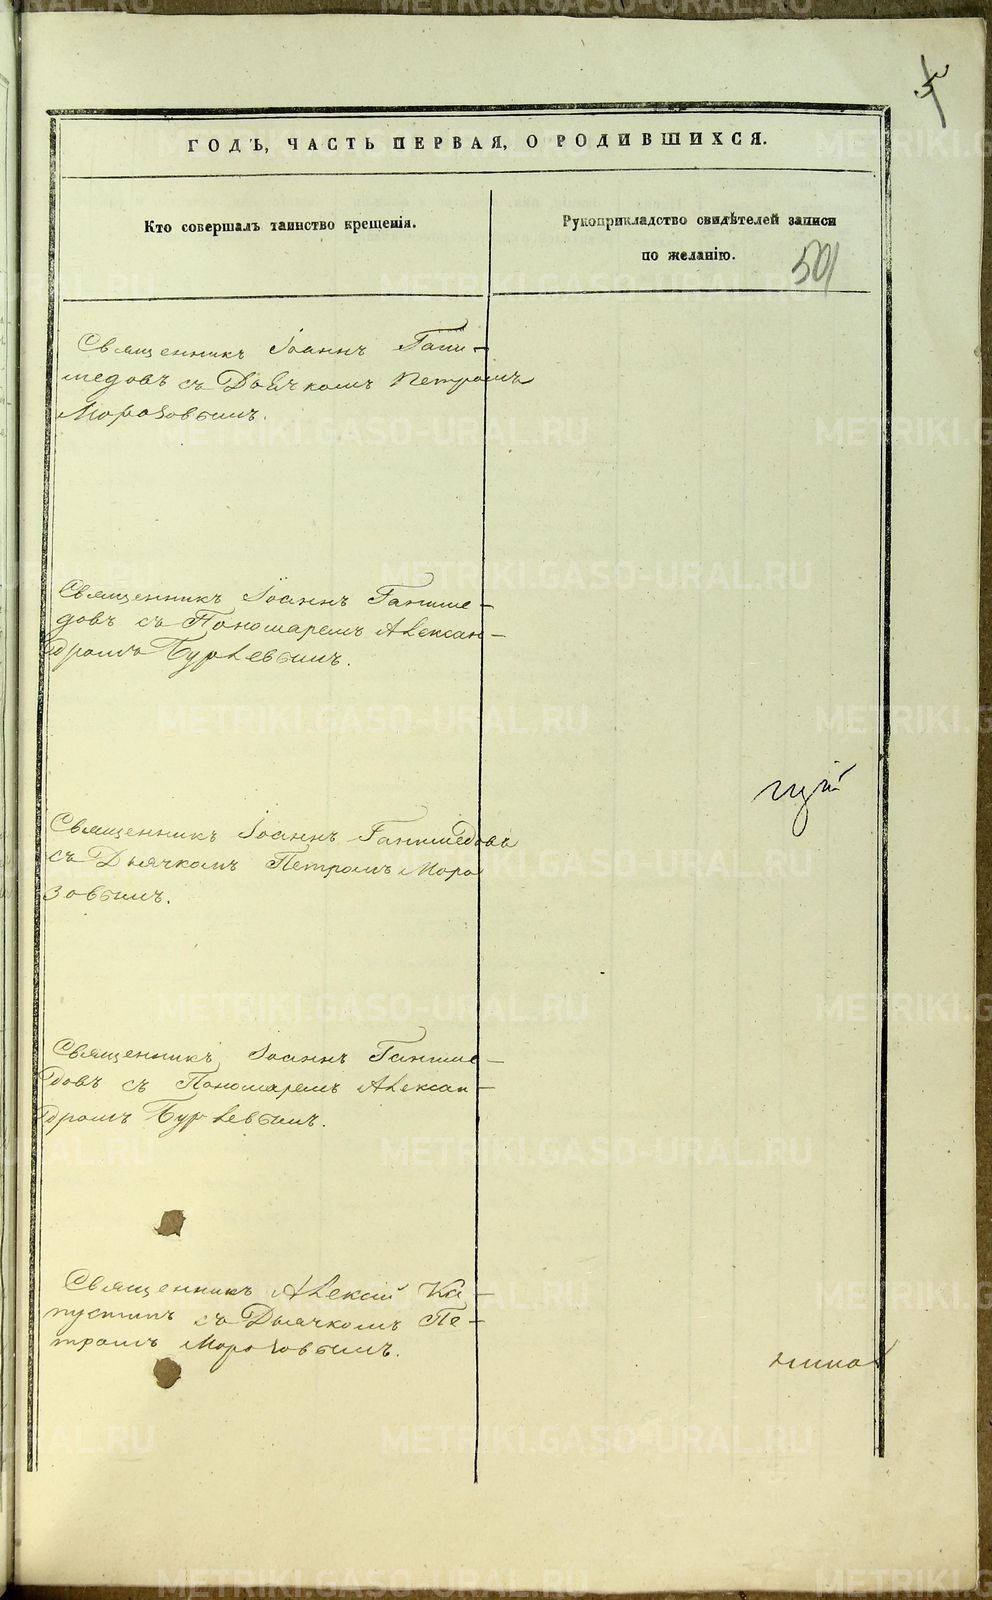 5
ГОДЪ, ЧАСТЬ ПЕРВАЯ, О РОДИВШИХСЯ.
Кто совершалъ таинство крещенія.
Рукоприкладство свидѣтелей записи
по желанію.
501
Священникъ Іоаннъ Гани-
медовъ съ Дьячкомъ Петромъ
Морозовымъ.
Священникъ Іоаннъ Ганиме-
довъ съ Пономаремъ Алексан-
дромъ Бурлевымъ.
Священникъ Іоаннъ Ганимедовъ
съ Дьячкомъ Петромъ Моро
зовымъ.
Священникъ Іоаннъ Ганиме-
довъ съ Пономаремъ Алексан-
дромъ Бурлевымъ.
Священникъ Алексій Ка-
пустинъ съ Дьячкомъ Пе-
тромъ Морозовымъ.
METRIKI.GASO-URAL.RU